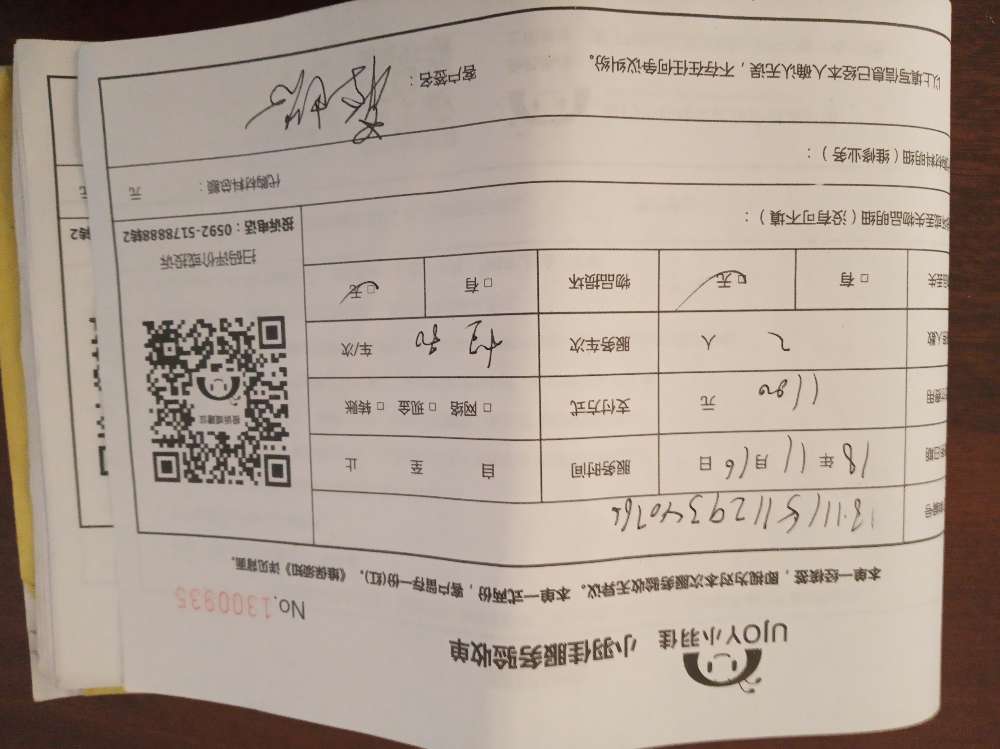 UJOY小羽佳 小羽佳服务验收单
No.1300935
本单一经接签，即视为对本次服务验收无异议。本单一式两份，客户留存一份(红)。《维保须知》详见背面。
编号
日期 18年11月16日 服务时间 自 至 止
费用 1180 元 支付方式 □网络 □现金 □转账
人数 2 人 服务车次 车/次
丢失 □有 □无 物品损坏 □有 □无
或丢失物品明细（没有可不填）：
投诉或建议
扫码评价或投诉
投诉电话：0592-5178888转2
材料明细（维修业务）：
代购材料总额： 元
以上填写信息已经本人确认无误，不存在任何争议纠纷。
客户签名：
元
转2